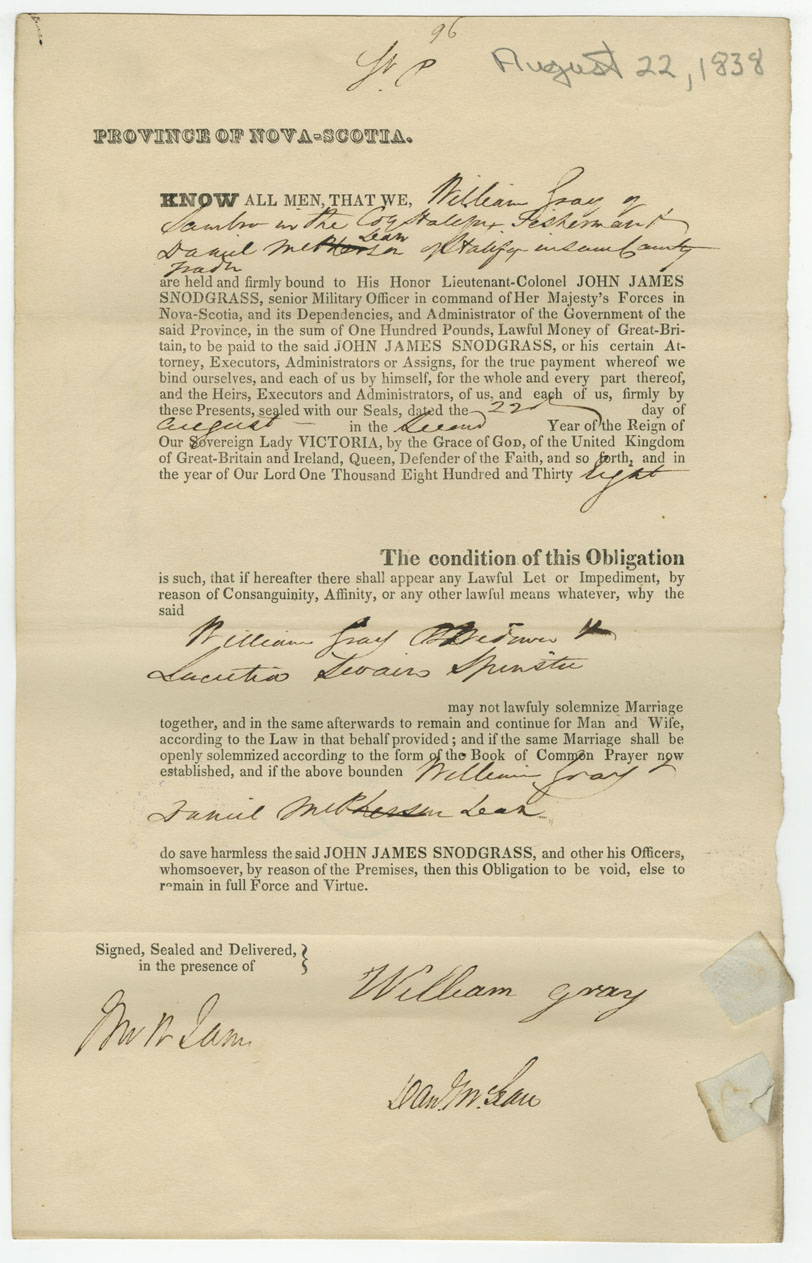 96
August 22, 1838
PROVINCE OF NOVA-SCOTIA.
KNOW ALL MEN, THAT WE, William Gray of
Sambro in the Coy Halifax Fisherman &
Daniel McLean of Halifax in said County
Trader
are held and firmly bound to His Honor Lieutenant-Colonel JOHN JAMES
SNODGRASS, senior Military Officer in command of Her Majesty's Forces in
Nova-Scotia, and its Dependencies, and Administrator of the Government of the
said Province, in the sum of One Hundred Pounds, Lawful Money of Great-Bri-
tain, to be paid to the said JOHN JAMES SNODGRASS, or his certain At-
torney, Executors, Administrators or Assigns, for the true payment whereof we
bind ourselves, and each of us by himself, for the whole and every part thereof,
and the Heirs, Executors and Administrators, of us, and each of us, firmly by
these Presents, sealed with our Seals, dated the 22d day of
August in the Second Year of the Reign of
Our Sovereign Lady VICTORIA, by the Grace of GOD, of the United Kingdom
of Great-Britain and Ireland, Queen, Defender of the Faith, and so forth, and in
the year of Our Lord One Thousand Eight Hundred and Thirty Eight
The condition of this Obligation
is such, that if hereafter there shall appear any Lawful Let or Impediment, by
reason of Consanguinity, Affinity, or any other lawful means whatever, why the
said
William Gray Widower &
Lucretia Swain Spinster
may not lawfuly solemnize Marriage
together, and in the same afterwards to remain and continue for Man and Wife,
according to the Law in that behalf provided; and if the same Marriage shall be
openly solemnized according to the form of the Book of Common Prayer now
established, and if the above bounden William Gray &
Daniel McPherson Lean
do save harmless the said JOHN JAMES SNODGRASS, and other his Officers,
whomsoever, by reason of the Premises, then this Obligation to be void, else to
remain in full Force and Virtue.
Signed, Sealed and Delivered,
in the presence of
William Gray
Dan. McLean